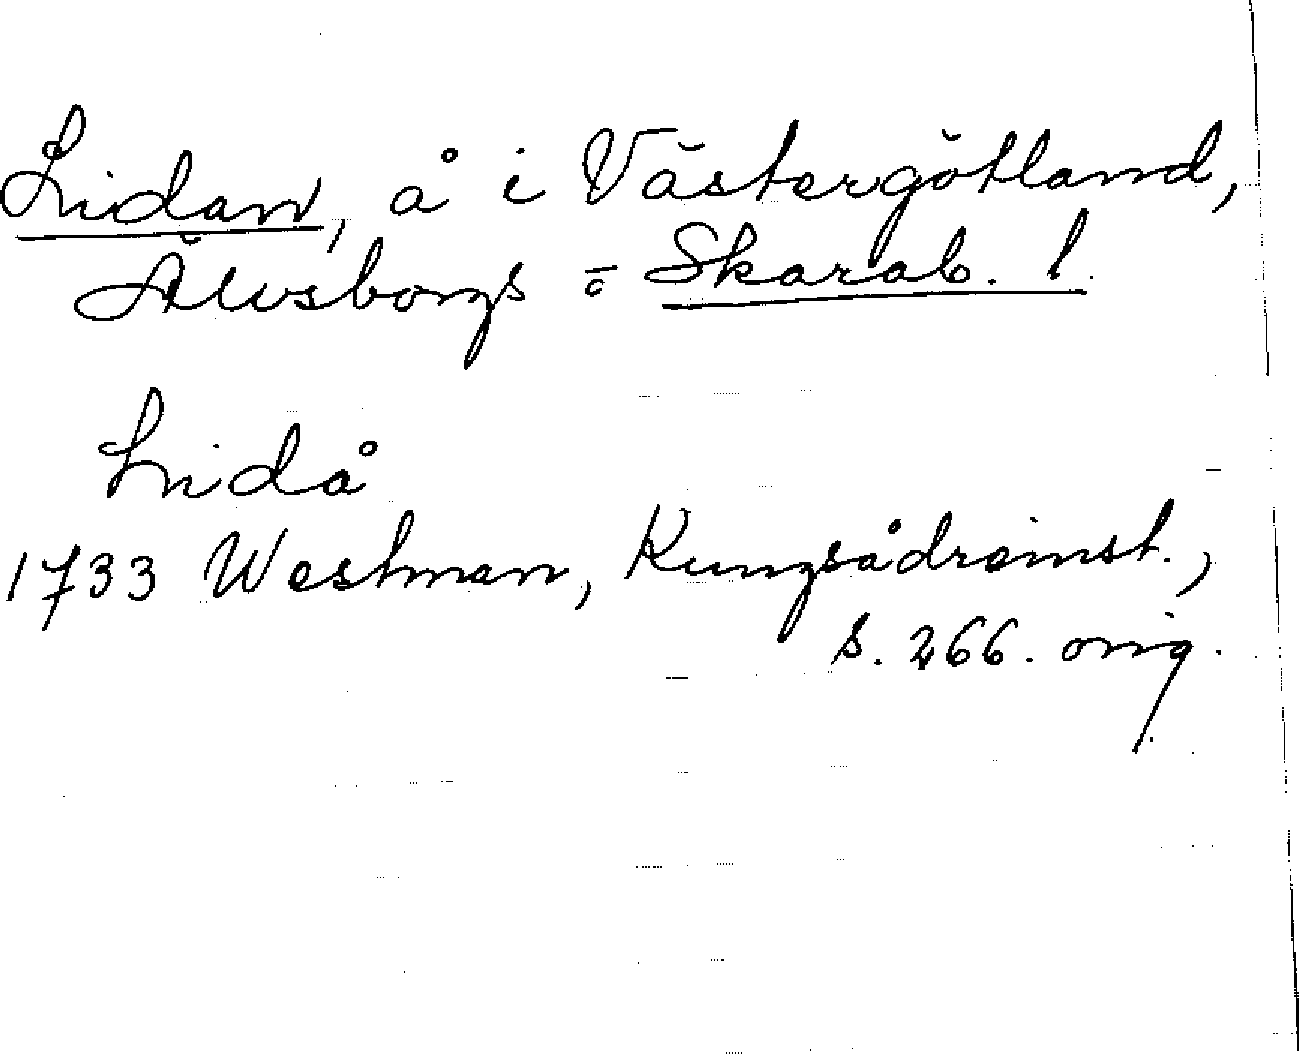 Lidan, å i Västergötland,
Älvsborgs o Skarab. l.
Lidå
1733 Westman, Kungsådreinst.,
s. 266. orig.